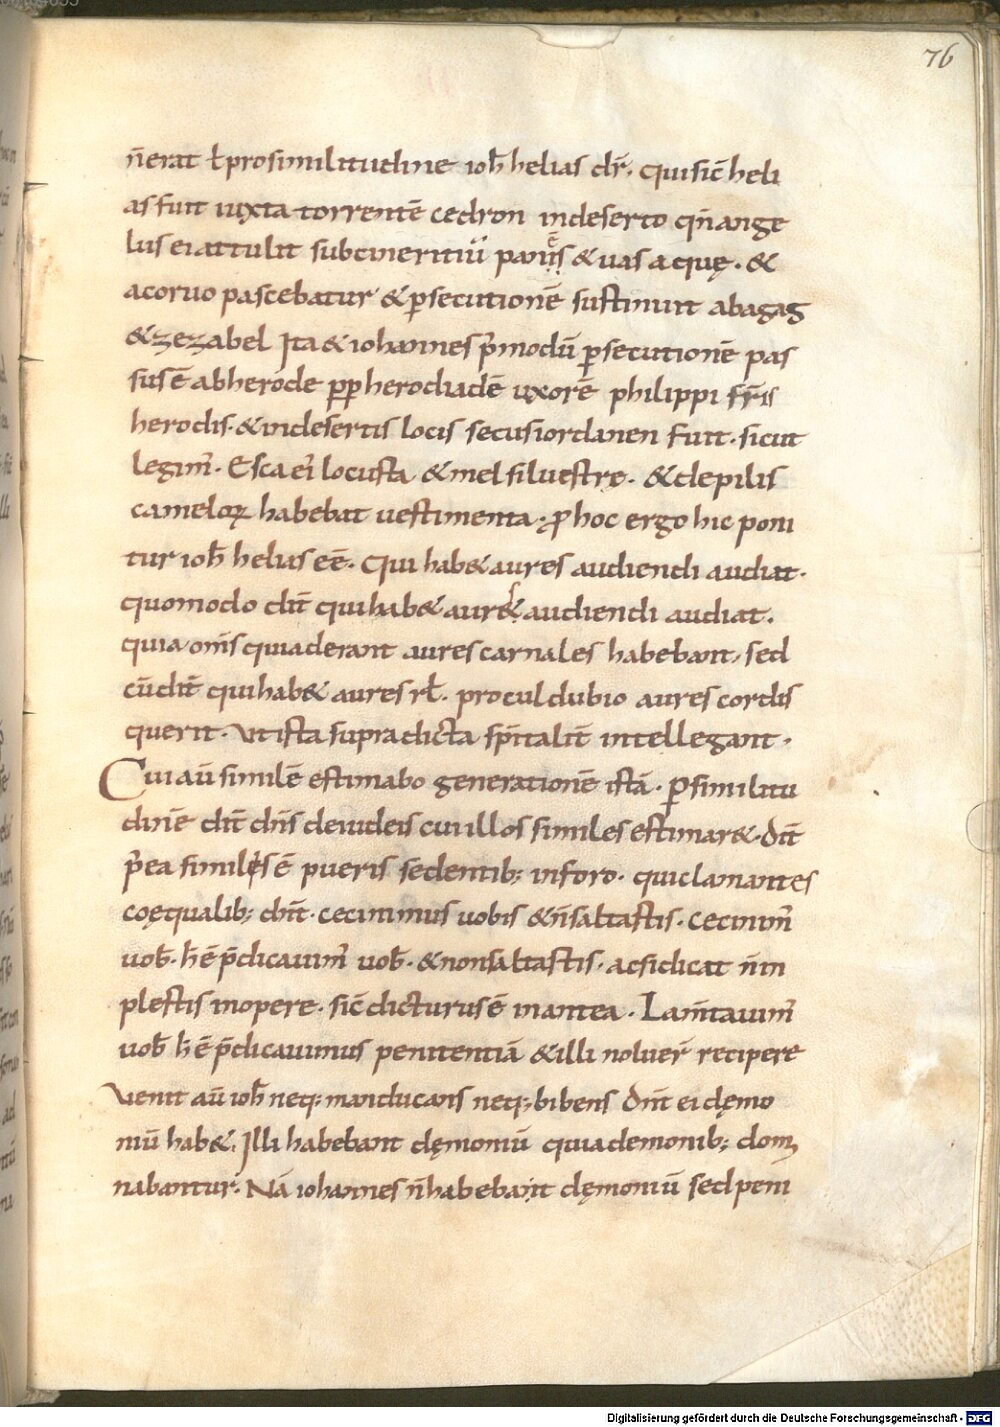 76
n̄erat ł prosimilitudine ioh̄ helias dr̄. qui sic̄ heli
as fuit iuxta torrentē cedron in deserto qn̄ ange
lus ei attulit subcineritiū panēs & uas aquę. &
a coruo pascebatur & ꝑsecutionē sustinuit ab agag
& zezabel Ita & iohannes p̄modū ꝑsecutionē pas
sus ē ab herode ꝓꝑ herodiadē uxorē philippi fr̄is
herodis. & in desertis locis secus iordanen fuit. sicut
legim̄. Esca ei locusta & mel siluestrę. & de pilis
cameloꝝ habebat uestimenta. ꝓ hoc ergo hic poni
tur ioh̄ helias eē. Qui hab& aures audiendi audiat.
quomodo dix̄ qui hab& aures audiendi audiat.
quia om̄s qui aderant aures carnales habebant, sed
cū dix̄ qui hab& aures rł. procul dubio aures cordis
querit. ut ista supradicta sp̄italit̄ intellegant.
Cui aū similē estimabo generationē istā. Ꝑ similitu
dinē dix̄ dn̄s de iudeis cui illos similes estimar&. Dix̄
p̄ea similis ē pueris sedentib; in foro. qui clamantes
coęqualib; dn̄t. cecinimus uobis & n̄ saltastis. cecinim̄
uob̄. h̄ ē p̄dicauim̄ uob̄. & non saltastis. ac si dicat n̄ im
plestis in opere. sic̄ dicturus ē in antea. Lam̄tauim̄
uob̄ h̄ ē p̄dicauimus penitentiā & illi noluer̄ recipere
Uenit aū ioh̄ neq; manducans neq; bibens Dn̄t ei dęmo
niū hab&. Illi habebant dęmoniū quia demonib; dom
nabantur. Nā iohannes n̄ habebant dęmoniū sed peni
Digitalisierung gefördert durch die Deutsche Forschungsgemeinschaft - DFG